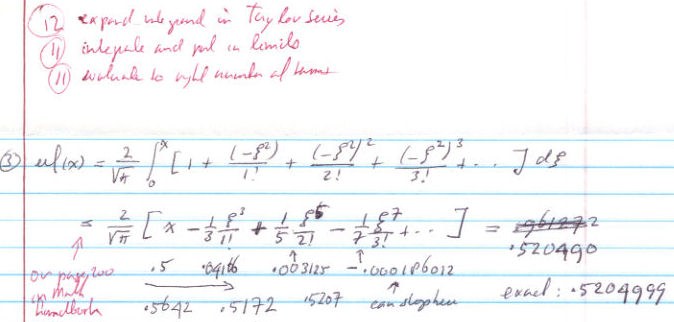 (12) expand integrand in Taylor series
(11) integrate and put in limits
(11) evaluate to right number of terms
(3) erf(x) = 2/√π ∫₀ˣ [1 + (-ξ²)/1! + (-ξ²)²/2! + (-ξ²)³/3! + .. ] dξ
= 2/√π [x - 1/3 ξ³/1! + 1/5 ξ⁵/2! - 1/7 ξ⁷/3! + .. ] =
.520490
or page 200 in math handbook
.5 .04166 .003125 -.000186012
.5642 .5172 .5207 can stop here
exact: .5204999